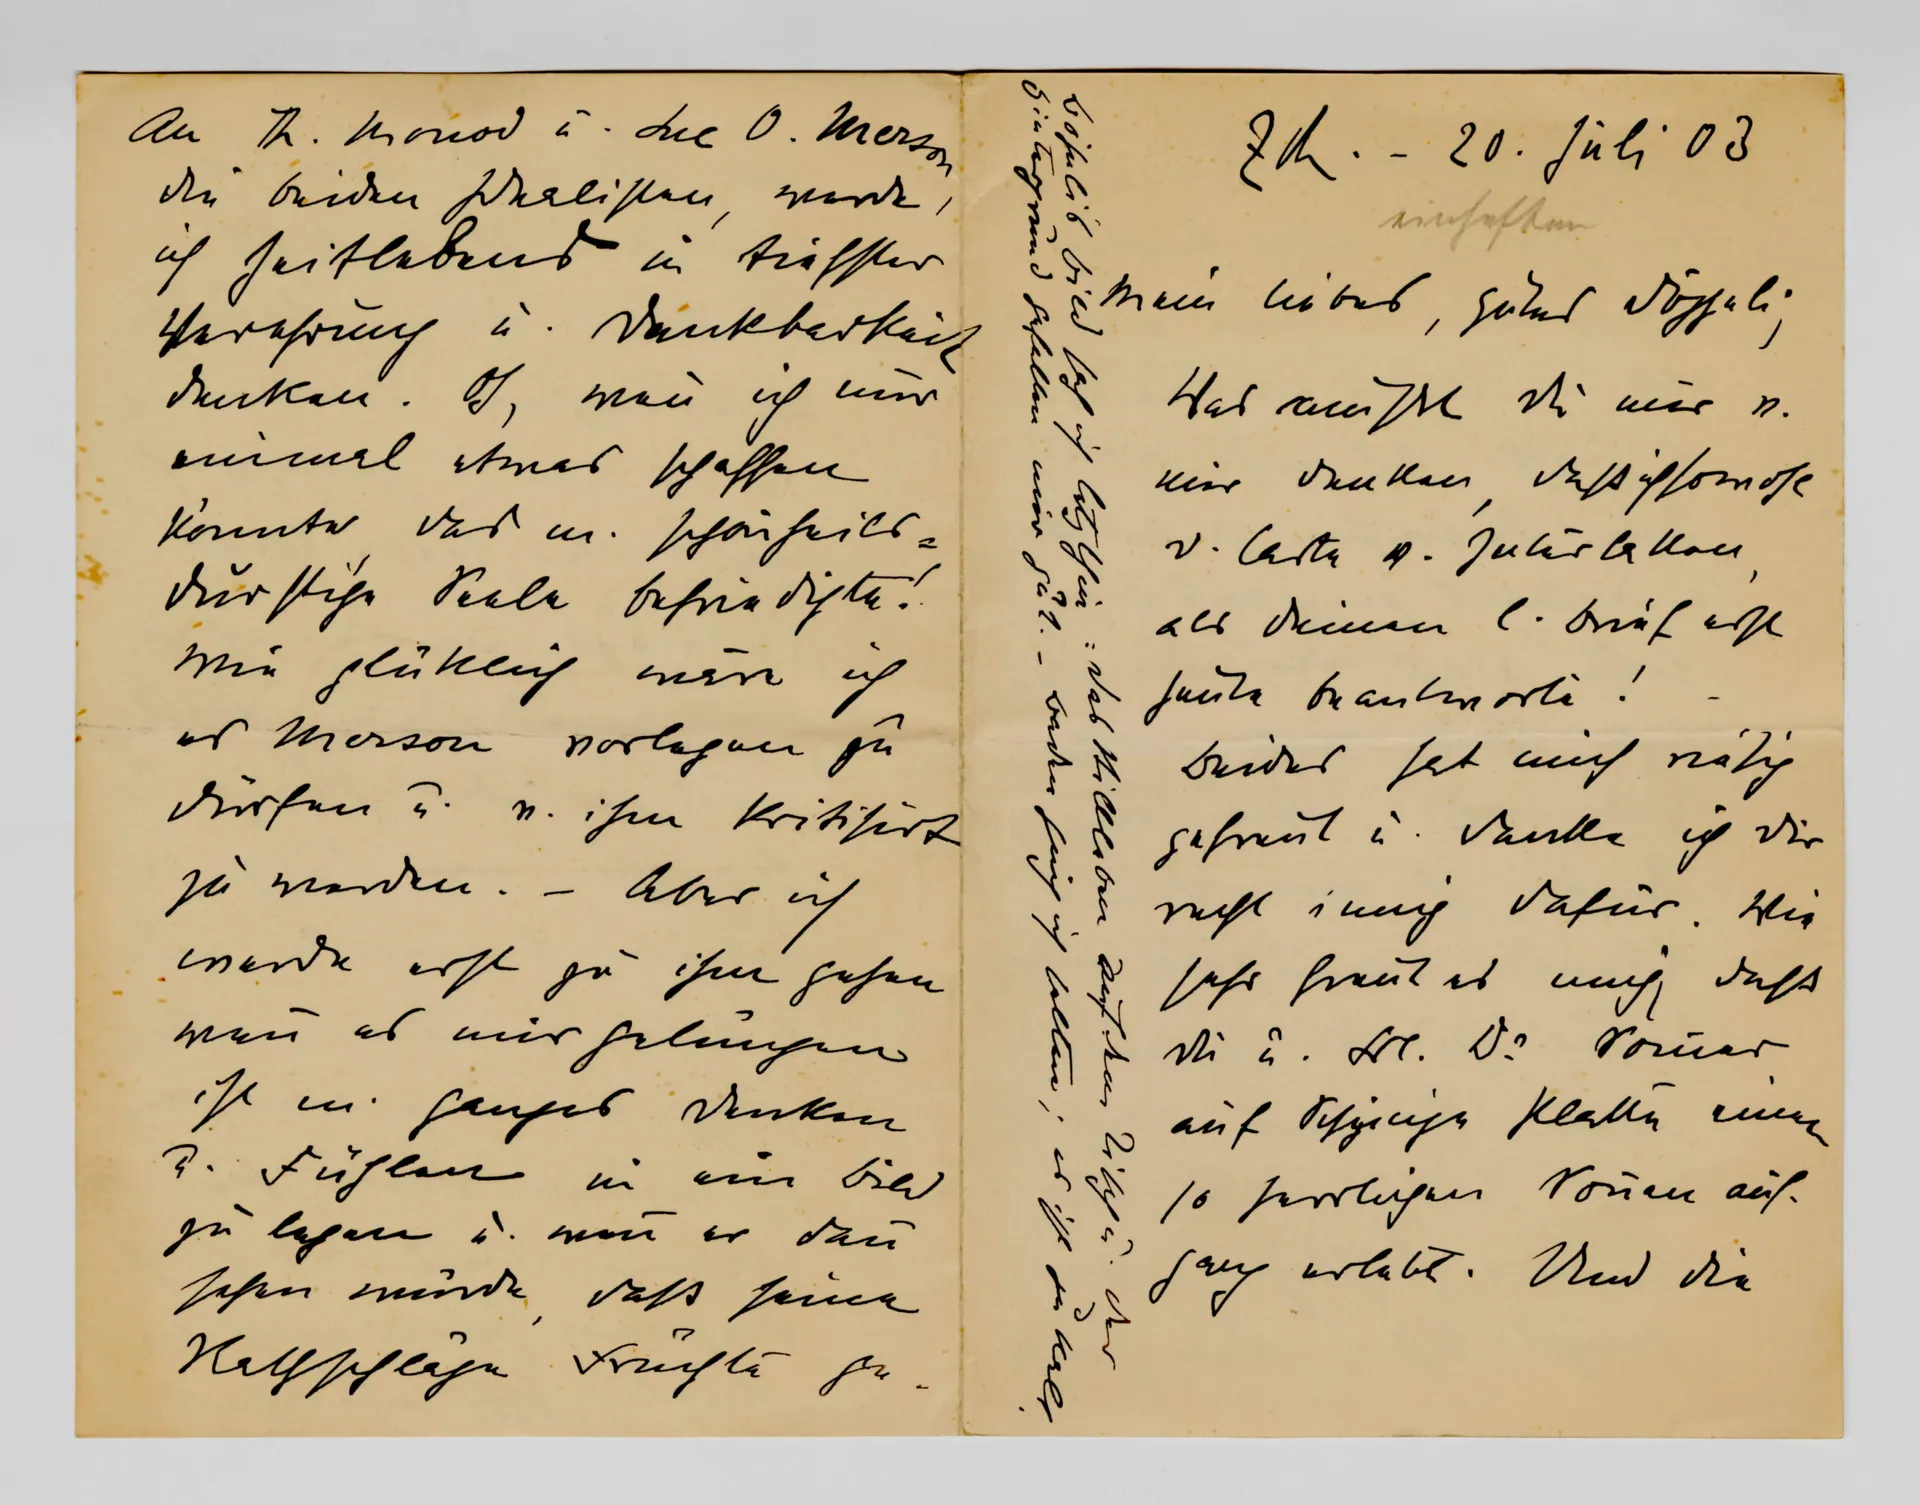 An Th. Monod u. Luc O. Merson,
die beiden Idealisten, werde,
ich zeitlebens in tiefster
Verehrung u. Dankbarkeit
denken. O, wenn ich nur
einmal etwas schaffen
könnte, das m. schönheits=
durstige Seele befriedigte!
Wie glücklich wäre ich
es Merson vorlegen zu
dürfen u. v. ihm kritisirt
zu werden. – Aber ich
werde erst zu ihm gehen
wenn es mir gelungen
ist m. ganzes Denken
u. Fühlen in ein Bild
zu legen u. wenn er dann
sehen würde, dass seine
Rathschläge Früchte ge-
Zh. – 20. Juli 03
einheften
Mein liebes, gutes Döggeli,
Was musst du nur v.
mir denken, dass ich sowohl
d. Carte v. Interlaken,
als deinen l. Brief erst
heute beantworte! –
Beides hat mich riesig
gefreut u. danke ich dir
recht innig dafür. Wie
sehr freut es mich, dass
du u. Frl. Dr Sommer
auf Schynige Platte einen
so herrlichen Sonnenauf-
gang erlebt. Und die
Bild sah ich letzthin: das Stillleben auf dem u. der
Hintergrund gefallen mir gut. – Baden ging ich selten; es ist zu kalt.